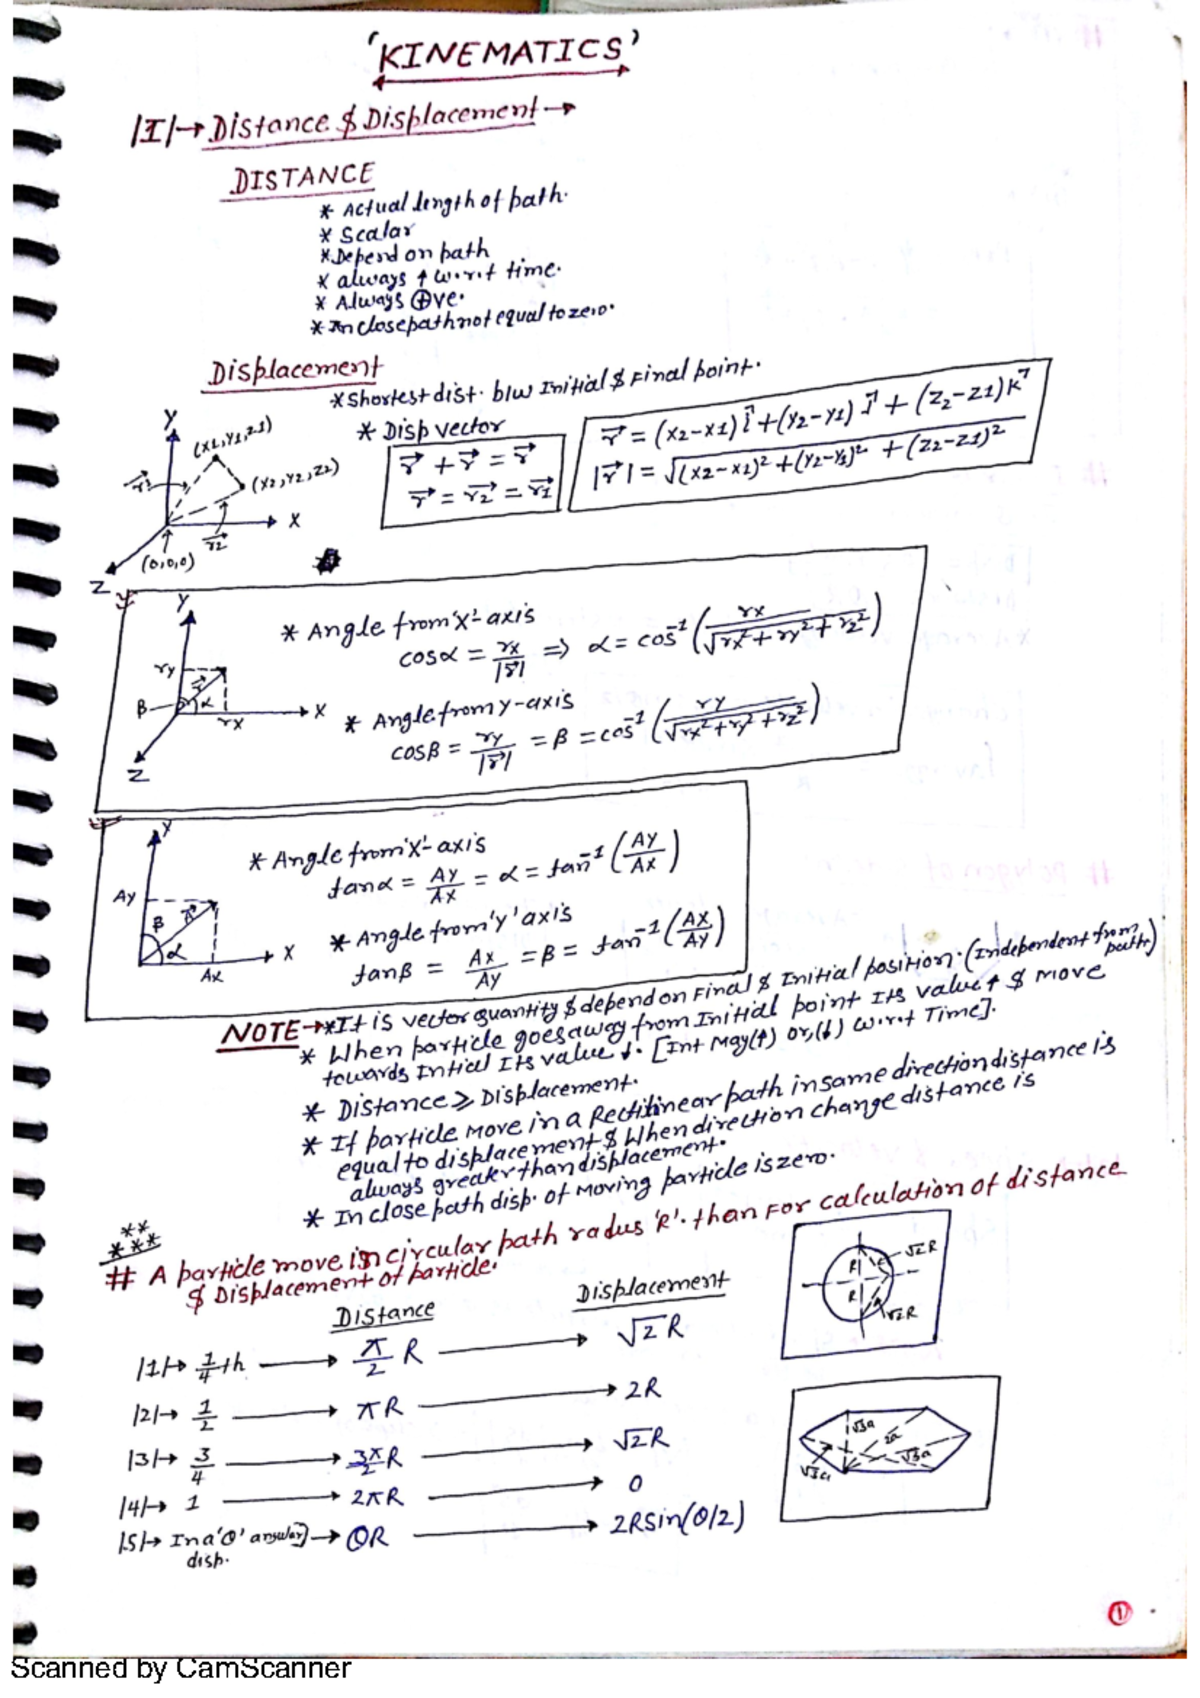 'KINEMATICS'
|I|→ Distance & Displacement →
DISTANCE
* Actual length of path.
* Scalar
* Depend on path
* always ↑ w.r.t time.
* Always ⊕ve.
* In closepath not equal to zero.
Displacement
* Shortest dist. b/w Initial & Final point.
* Disp vector
r⃗ + r⃗ = r⃗
r⃗ = r2⃗ = r1⃗
r⃗ = (x2-x1) î + (y2-y1) ĵ + (z2-z1) k⃗
|r⃗| = √(x2-x1)² + (y2-y1)² + (z2-z1)²
Y
(x1,y1,z1)
(x2,y2,z2)
X
r2⃗
(0,0,0)
Z
Y
ry
r⃗
β
α
rx
X
Z
* Angle from 'X'-axis
cosα = rx/|r⃗| ⇒ α = cos⁻¹ (rx/√rx²+ry²+rz²)
* Angle from y-axis
cosβ = ry/|r⃗| = β = cos⁻¹ (ry/√rx²+ry²+rz²)
Y
Ay
β
A⃗
α
Ax
X
* Angle from 'X'-axis
tanα = Ay/Ax = α = tan⁻¹ (Ay/Ax)
* Angle from 'y' axis
tanβ = Ax/Ay = β = tan⁻¹ (Ax/Ay)
NOTE → * It is vector quantity & depend on Final & Initial position. (Independent from path)
* When particle goes away from Initial point Its value ↑ & move
towards Intial Its value ↓. [Int may(↑) or,(↓) w.r.t Time].
* Distance ⩾ Displacement.
* If particle move in a Rectilinear path in same direction distance is
equal to displacement & When direction change distance is
always greater than displacement.
* In close path disp. of moving particle is zero.
** ***
# A particle move in circular path radus 'R'. than For calculation of distance
& Displacement of particle.
Distance Displacement
|1|→ 1/4th → π/2 R → √2 R
|2|→ 1/2 → πR → 2R
|3|→ 3/4 → 3π/2 R → √2R
|4|→ 1 → 2πR → 0
|5|→ In a 'θ' angular → θR → 2Rsin(θ/2)
disp.
√2R
R
R
√2R
√3a
2a
√3a
√3a
1
Scanned by CamScanner